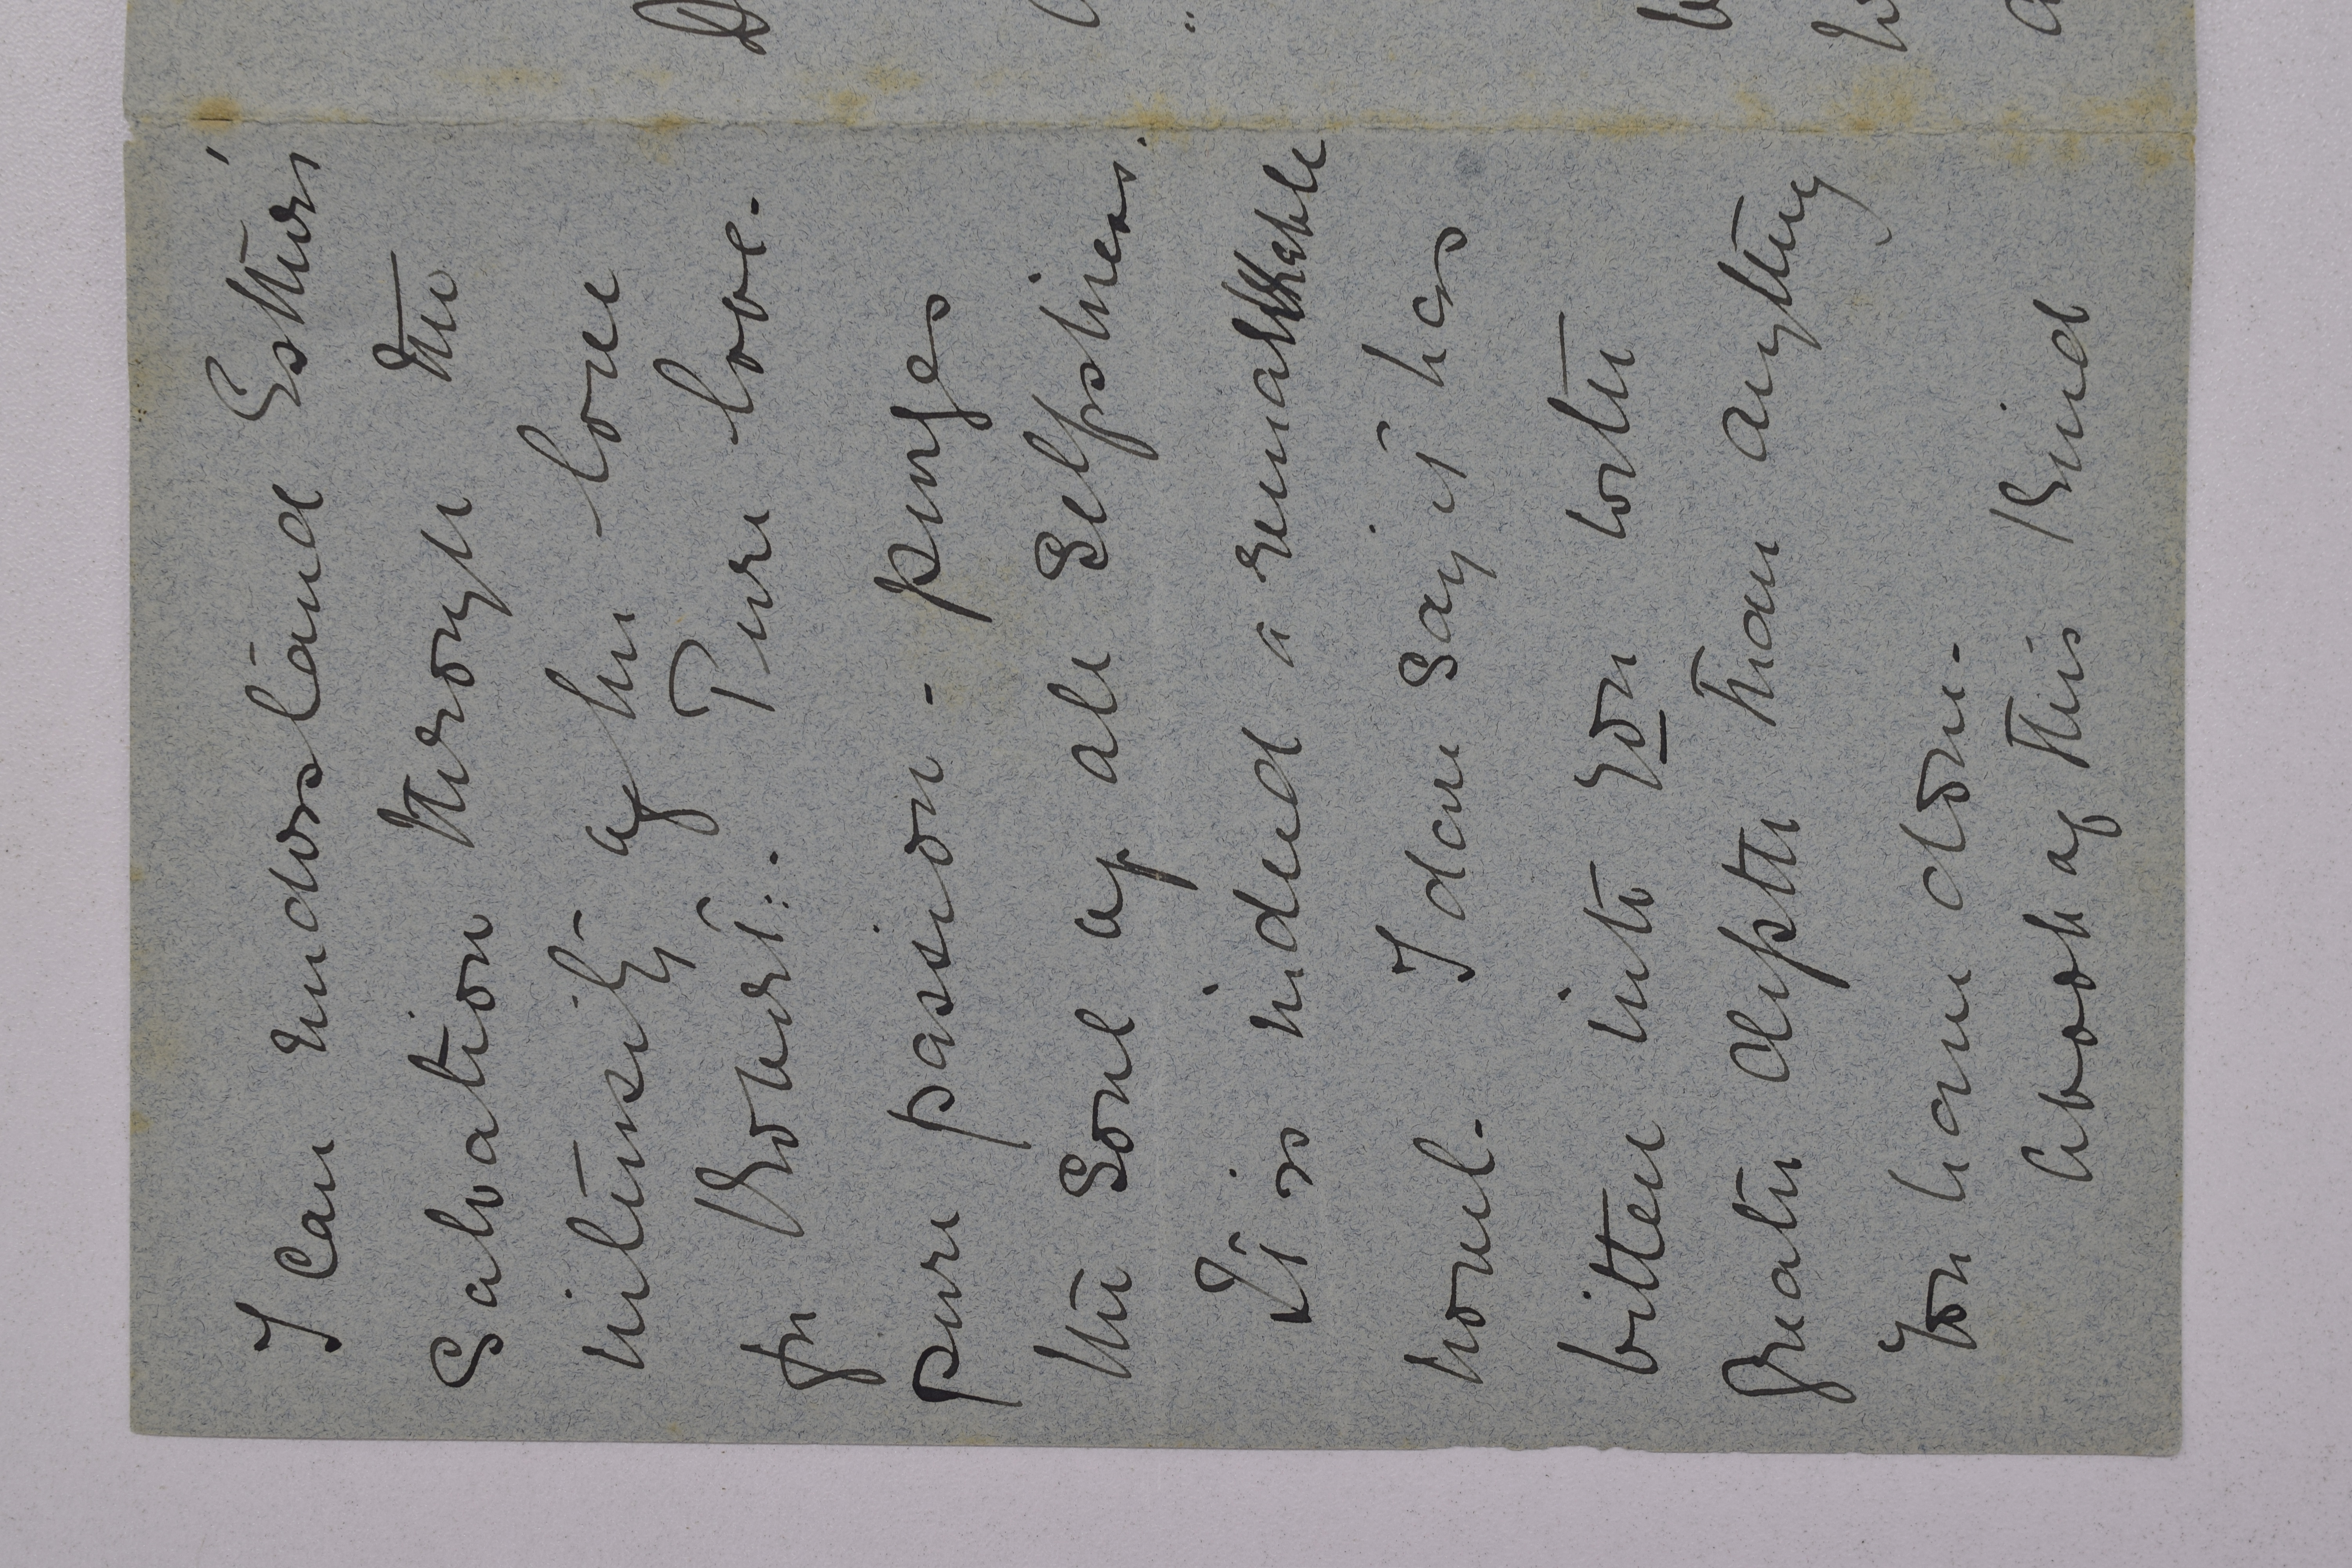 I can understand Esther's
Salvation through the
intensity of her love
for Robert: Pure love.
pure passion - purges
the soul of all selfishness.
It is indeed a remarkable
novel. I dare say it has
bitten into you with
greater depth than anything
you have done.
A book of this kind